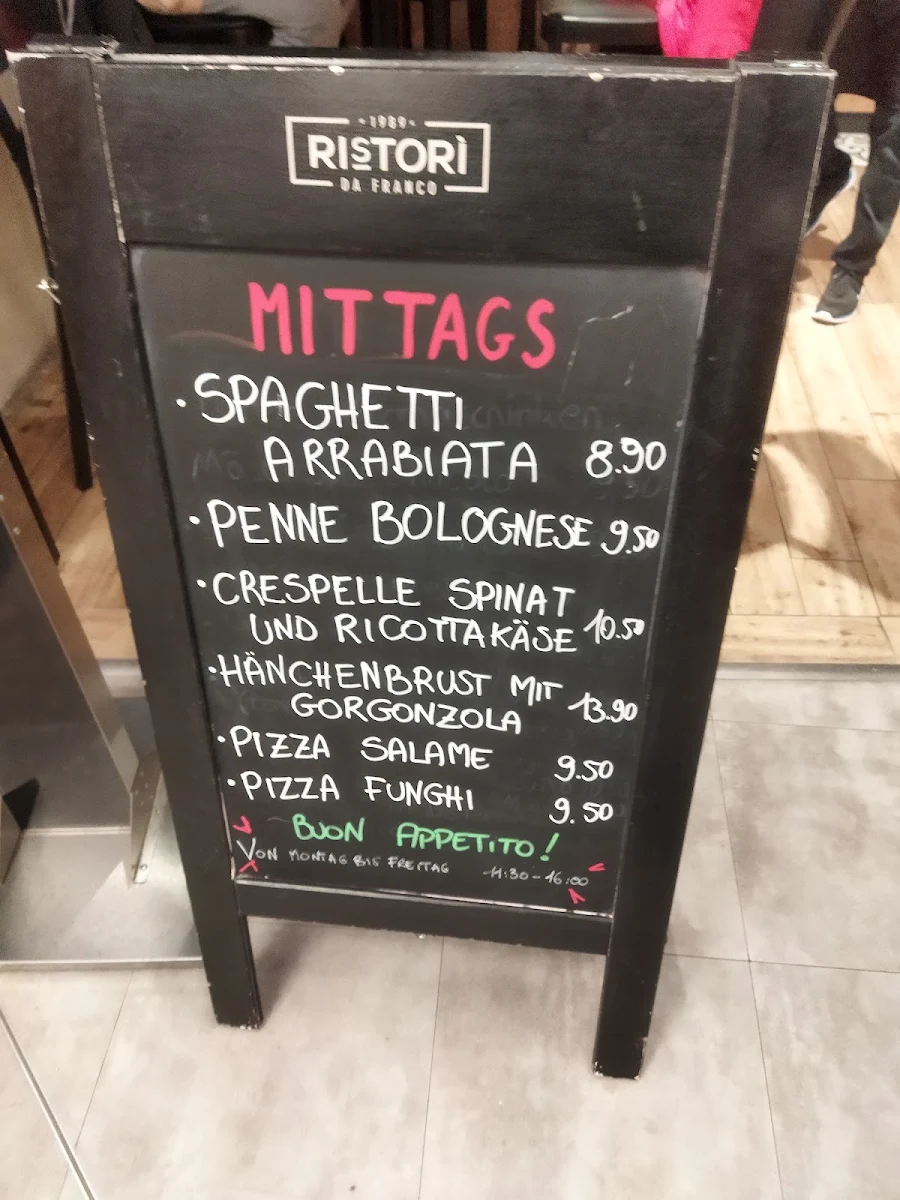 ~1989~
RISTORÌ
DA FRANCO
MITTAGS
· SPAGHETTI
ARRABIATA 8.90
· PENNE BOLOGNESE 9.50
· CRESPELLE SPINAT
UND RICOTTAKÄSE 10.50
· HÄNCHENBRUST MIT
GORGONZOLA 13.90
· PIZZA SALAME 9.50
· PIZZA FUNGHI 9.50
BUON APPETITO!
VON MONTAG BIS FREITAG 11:30-16:00